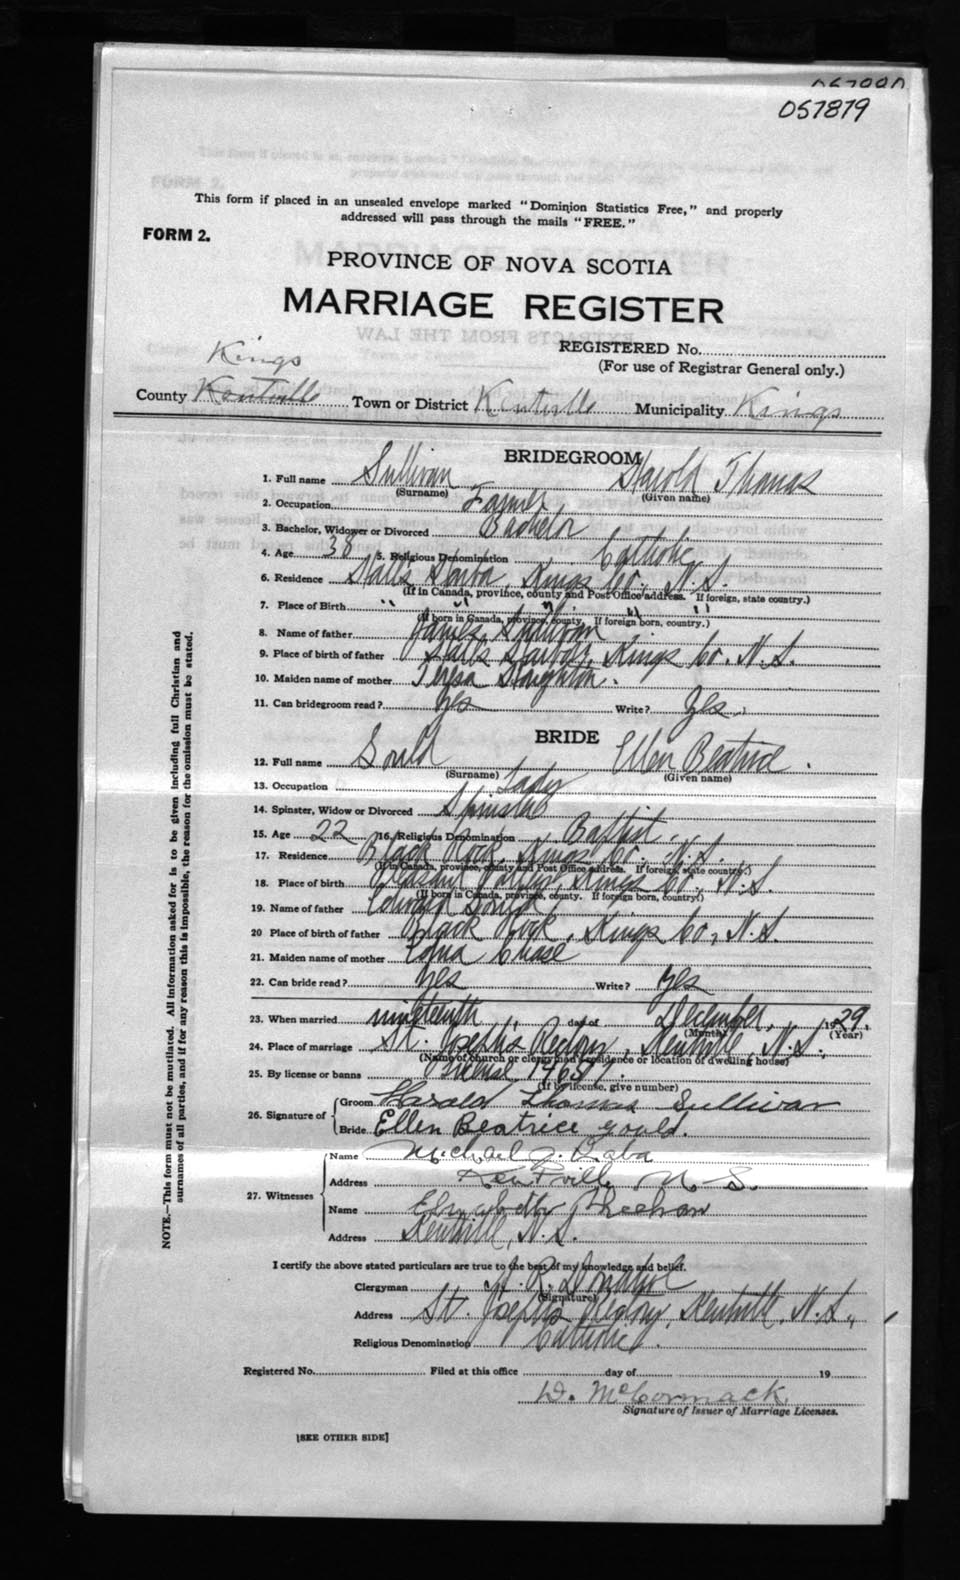 057879
This form if placed in an unsealed envelope marked "Dominion Statistics Free," and properly
addressed will pass through the mails "FREE."
FORM 2.
PROVINCE OF NOVA SCOTIA
MARRIAGE REGISTER
REGISTERED No.
(For use of Registrar General only.)
Kings
County Kentville Town or District Kentville Municipality Kings
BRIDEGROOM
1. Full name Sullivan Harold Thomas
(Surname) (Given name)
2. Occupation Farmer
3. Bachelor, Widower or Divorced Bachelor
4. Age 38 5. Religious Denomination Catholic
6. Residence Halls Harbor, Kings Co., N.S.
(If in Canada, province, county and Post Office address. If foreign, state country.)
7. Place of Birth " " " " "
(If born in Canada, province, county. If foreign born, country.)
8. Name of father James Sullivan
9. Place of birth of father Halls Harbor, Kings Co. N.S.
10. Maiden name of mother Teresa Houghton.
11. Can bridegroom read? Yes Write? Yes
BRIDE
12. Full name Gould Ellen Beatrice.
(Surname) (Given name)
13. Occupation Lady
14. Spinster, Widow or Divorced Spinster
15. Age 22 16. Religious Denomination Baptist.
17. Residence Black Rock, Kings Co. N.S.
(If in Canada, province, county and Post Office address. If foreign, state country.)
18. Place of birth Pleasant Valley, Kings Co., N.S.
(If born in Canada, province, county. If foreign born, country)
19. Name of father Edward Gould
20 Place of birth of father Black Rock, Kings Co., N.S.
21. Maiden name of mother Edna Chase
22. Can bride read? Yes Write? Yes
23. When married nineteenth day of December, 1929.
(Month) (Year)
24. Place of marriage St. Joseph's Rectory, Kentville, N.S.,
(Name of church or clergyman's residence or location of dwelling house)
25. By license or banns License
(If by license, give number)
26. Signature of Groom Harold Thomas Sullivan
Bride Ellen Beatrice Gould.
27. Witnesses
Name Michael J.
Address Kentville N.S.
Name Elizabeth Sheehan
Address Kentville, N.S.
I certify the above stated particulars are true to the best of my knowledge and belief.
Clergyman
(Signature)
Address St. Joseph's Rectory, Kentville, N.S.,
Religious Denomination Catholic.
Registered No. Filed at this office day of 19
W. McCormack
Signature of Issuer of Marriage Licenses.
[SEE OTHER SIDE]
NOTE.—This form must not be mutilated. All information asked for is to be given including full Christian and
surnames of all parties, and if for any reason this is impossible, the reason for the omission must be stated.